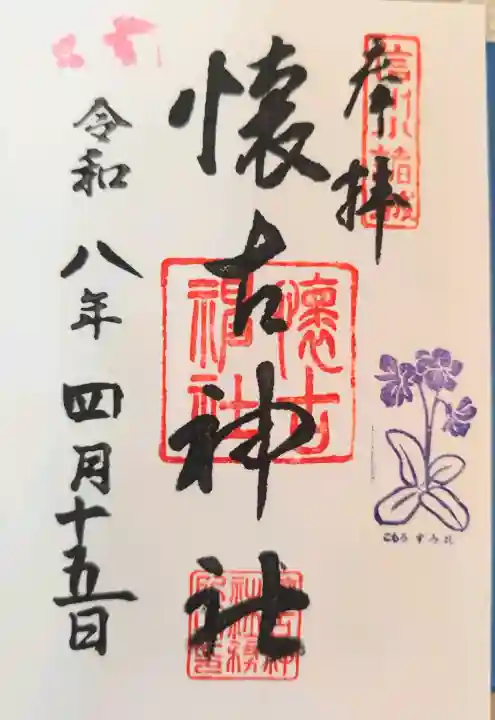 奉拝
信州小諸城
懐古神社
懐古神社
令和八年四月十五日
こもろすみれ